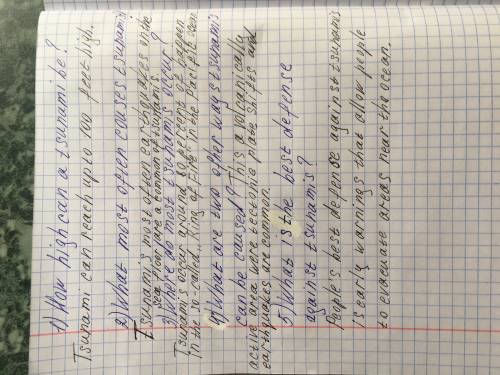 1) How high can a tsunami be?
Tsunami can reach up to 100 feet high.
2) What most often causes tsunami
Tsunamis most often earthquakes on the
sea floor are a common of tsunamis.
3) Where do most tsunamis occur?
Tsunamis occur around 80 percent of happen
in the so-called „Ring of Fire" in the Pacific Ocean
4) What are two other ways tsunamis
can be caused? This a volcanically
active area were tectonic plate shifts and
earthquakes are common.
5) What is the best defense
against tsunamis?
People's best defense against tsunamis
is early warnings that allow people
to evacuate areas near the ocean.